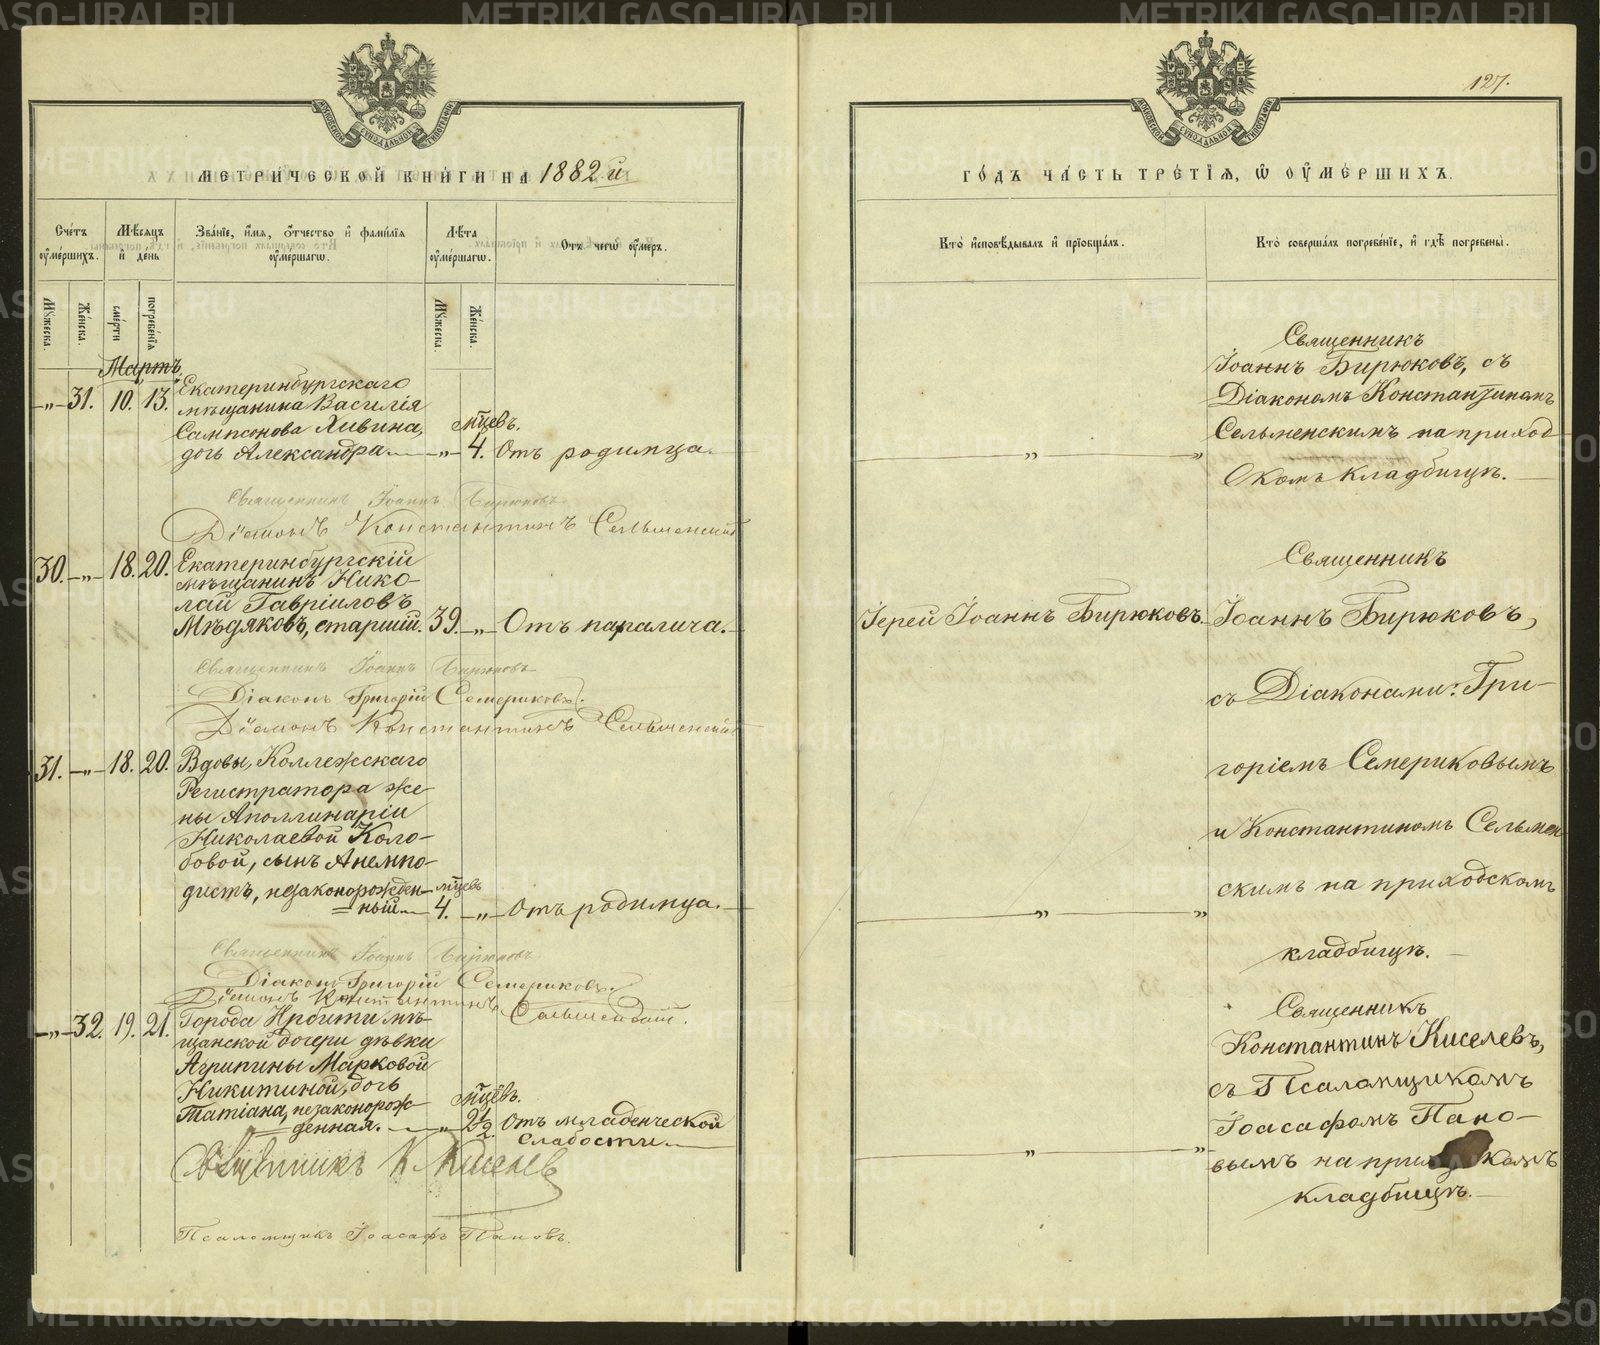 127.
МЕТРИЧЕСКОЙ КНИГИ НА 1882 й
ГОДЪ ЧАСТЬ ТРЕТІЯ, Ѡ ОУМЕРШИХЪ.
Счетъ оумершихъ.
Мѣсяцъ и день
Званіе, имя, отчество и фамилія оумершагѡ.
Лѣта оумершагѡ.
Отъ чегѡ оумеръ.
Кто исповѣдывалъ и пріобщалъ.
Кто совершалъ погребеніе, и гдѣ погребены.
Мужеска.
Женска.
смерти
погребенія
Мужеска.
Женска.
Мартъ.
-„- 31. 10. 13. Екатеринбургскаго
мѣщанина Василія
Сампсонова Хивина, мцевъ.
дочь Александра. -„- 4. Отъ родимца.
Священникъ
Іоаннъ Бирюковъ, съ
Діакономъ Константиномъ
Сельменскимъ на приход-
скомъ кладбищѣ.
Священникъ Іоаннъ Бирюковъ
Діаконъ Константинъ Сельменскій
30. -„- 18. 20. Екатеринбургскій
мѣщанинъ Нико-
лай Гавріиловъ
Мѣдяковъ, старшій. 39. -„- Отъ паралича.
Іерей Іоаннъ Бирюковъ.
Священникъ
Іоаннъ Бирюковъ,
съ Діаконами: Гри-
горіемъ Семериковымъ
и Константиномъ Сельмен-
скимъ на приходскомъ
кладбищѣ.
Священникъ Іоаннъ Бирюковъ
Діаконъ Григорій Семериковъ.
Діаконъ Константинъ Сельменскій
31. -„- 18. 20. Вдовы, Коллежскаго
Регистратора же-
ны Аполлинаріи
Николаевой Коло-
бовой, сынъ Анемпо-
дистъ, незаконорожден- мцевъ
ный. 4. -„- Отъ родимца.
Священникъ Іоаннъ Бирюковъ
Діаконъ Григорій Семериковъ.
Діаконъ Константинъ
Сельменскій.
-„- 32. 19. 21. Города Ирбити мѣ-
щанской дочери дѣвки
Агрипины Марковой
Никитиной, дочь мцевъ.
Татіана, незаконорож-
денная. „ 2 1/2. Отъ младенческой
слабости.
Священникъ
Константинъ Киселевъ,
съ Псаломщикомъ
Іоасафомъ Пано-
вымъ на приходскомъ
кладбищѣ.
Священникъ К Киселев
Псаломщикъ Іоасафъ Пановъ.